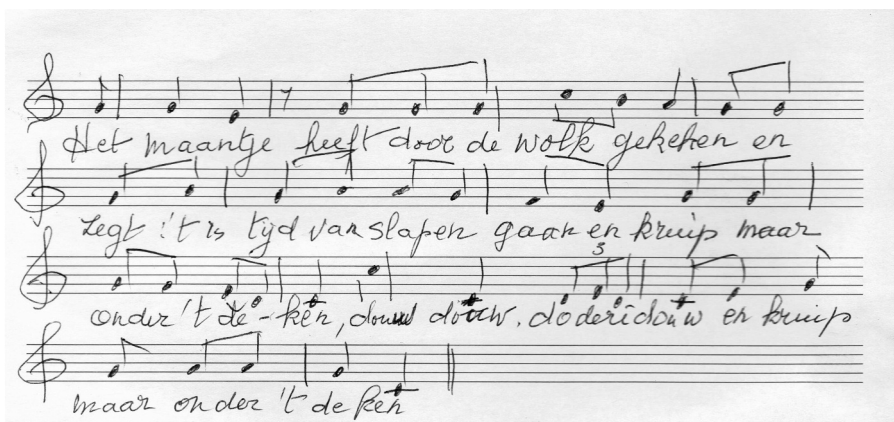 Het maantje heeft door de wolk gekeken en
zegt 't is tijd van slapen gaan en kruip maar
3
onder 't de-ken, douw douw. doderidouw en kruip
maar onder 't deken